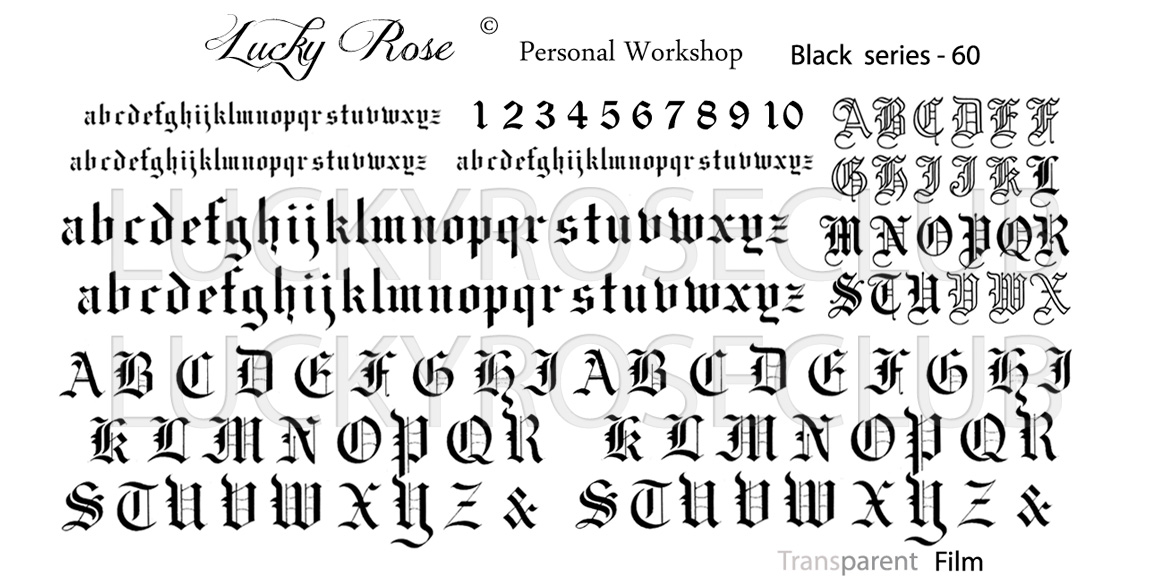 Lucky Rose © Personal Workshop Black series - 60
abcdefghijklmnopqrstuvwxyz 1 2 3 4 5 6 7 8 9 10
abcdefghijklmnopqrstuvwxyz abcdefghijklmnopqrstuvwxyz
abcdefghijklmnopqrstuvwxyz
abcdefghijklmnopqrstuvwxyz
A B C D E F
G H I J K L
M N O P Q R
S T U V W X
LUCKYROSECLUB
A B C D E F G H I A B C D E F G H I
LUCKYROSECLUB
K L M N O P Q R K L M N O P Q R
S T U V W X Y Z & S T U V W X Y Z &
Transparent Film